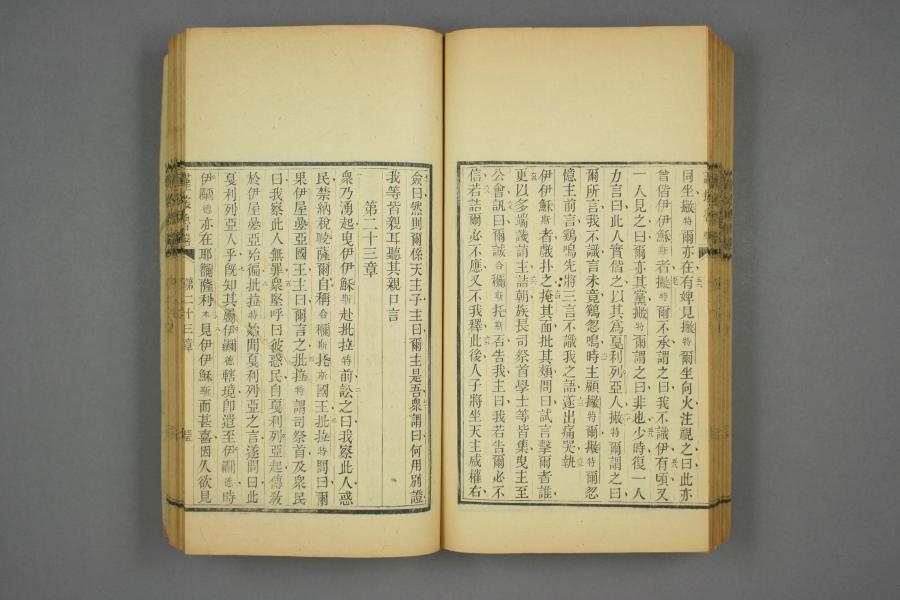 同坐撇特爾亦在有婢見撇特爾坐向火注視之曰此亦
曾偕伊伊穌斯者撇特爾不承謂之曰我不識伊有頃又
一人見之曰爾亦其黨撇特爾謂之曰非也少時復一人
力言曰此人實偕之以其爲戛利列亞人撇特爾謂之曰
爾所言我不識言未竟鷄忽鳴時主顧撇特爾撇特爾忽
憶主前言鷄鳴先將三言不識我之語遂出痛哭執
伊伊穌斯者戲扑之掩其面批其頰問曰試言擊爾者誰
更以多端譏誚主詰朝族長司祭首學士等皆集曳主至
公會訊曰爾誠合穪斯托斯否告我主曰我若告爾必不
信若詰爾必不應又不我釋此後人子將坐天主威權右
僉曰然則爾係天主子主曰爾主是吾衆謂曰何用別證
我等皆親耳聽其親口言
第二十三章
衆乃湧起曳伊伊穌斯赴批拉特前訟之曰我察此人惑
民禁納稅薩爾自稱合穪斯托斯國王批拉特問曰爾
果伊屋疊亞國王主曰爾言之批拉特謂司祭首及衆民
曰我察此人無罪衆堅呼曰彼惑民自戛利列亞起傳敎
於伊屋疊亞殆徧批拉特始聞戛利列亞之言遂問曰此
戛利列亞人乎旣知其屬伊德轄境卽遣至伊德時
伊德亦在耶薩利木見伊伊穌斯而甚喜因久欲見
第二十三章